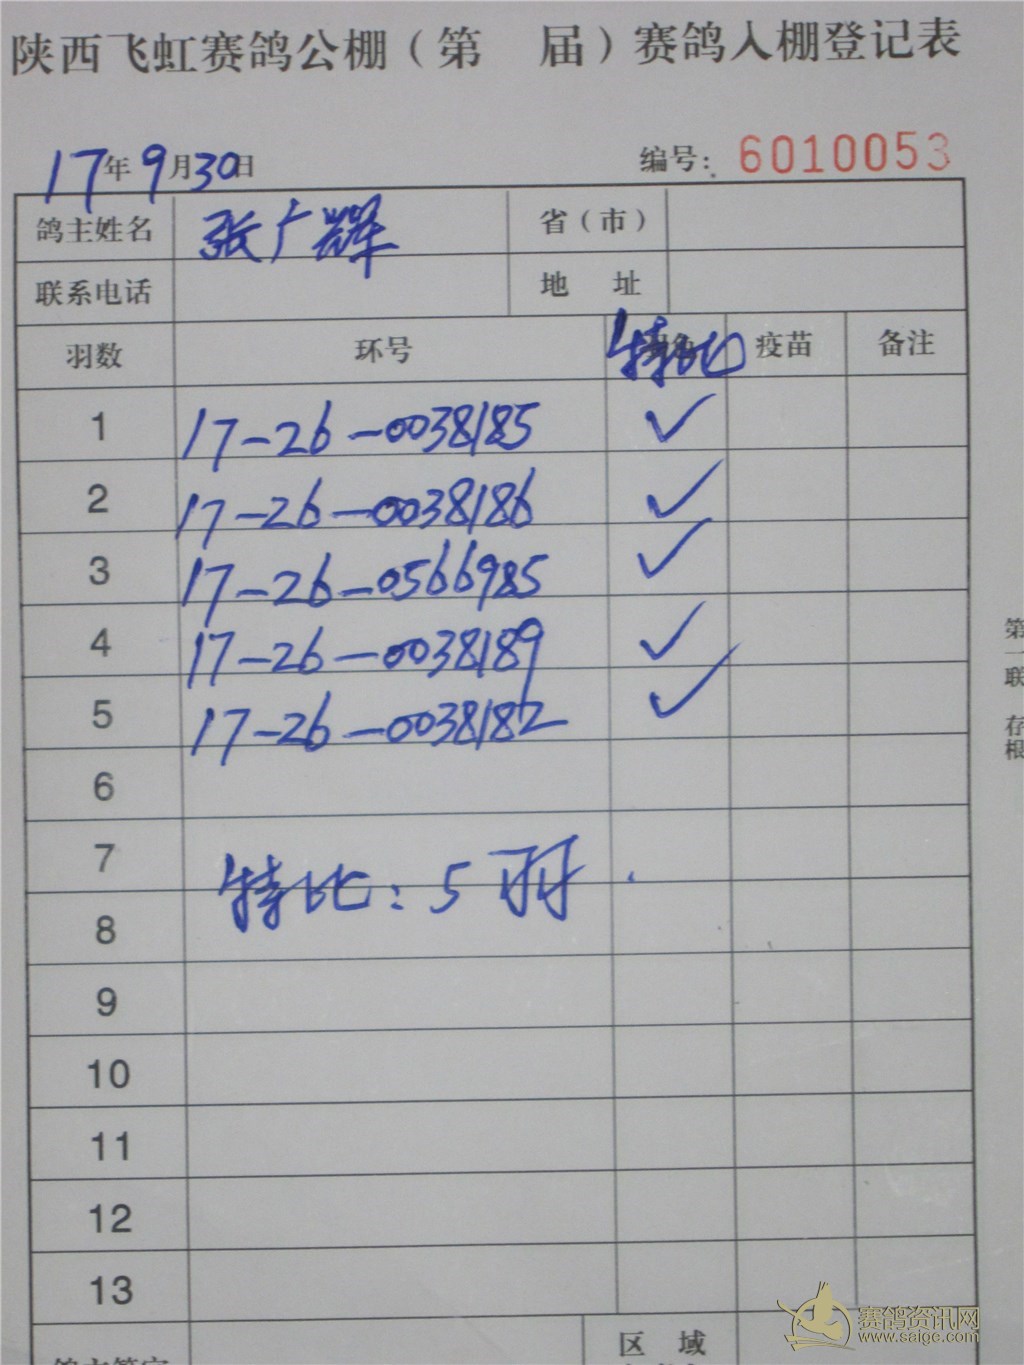 陕西飞虹赛鸽公棚（第 届）赛鸽入棚登记表
17年9月30日 编号: 6010053
鸽主姓名 张广辉 省（市）
联系电话 地 址
羽数 环号 特比 疫苗 备注
1 17-26-0038185 ✓
2 17-26-0038186 ✓
3 17-26-0566985 ✓
4 17-26-0038189 ✓
5 17-26-0038182 ✓
6
7
特比: 5羽.
8
9
10
11
12
13
区 域
第一联 存根
赛鸽资讯网
www.saige.com